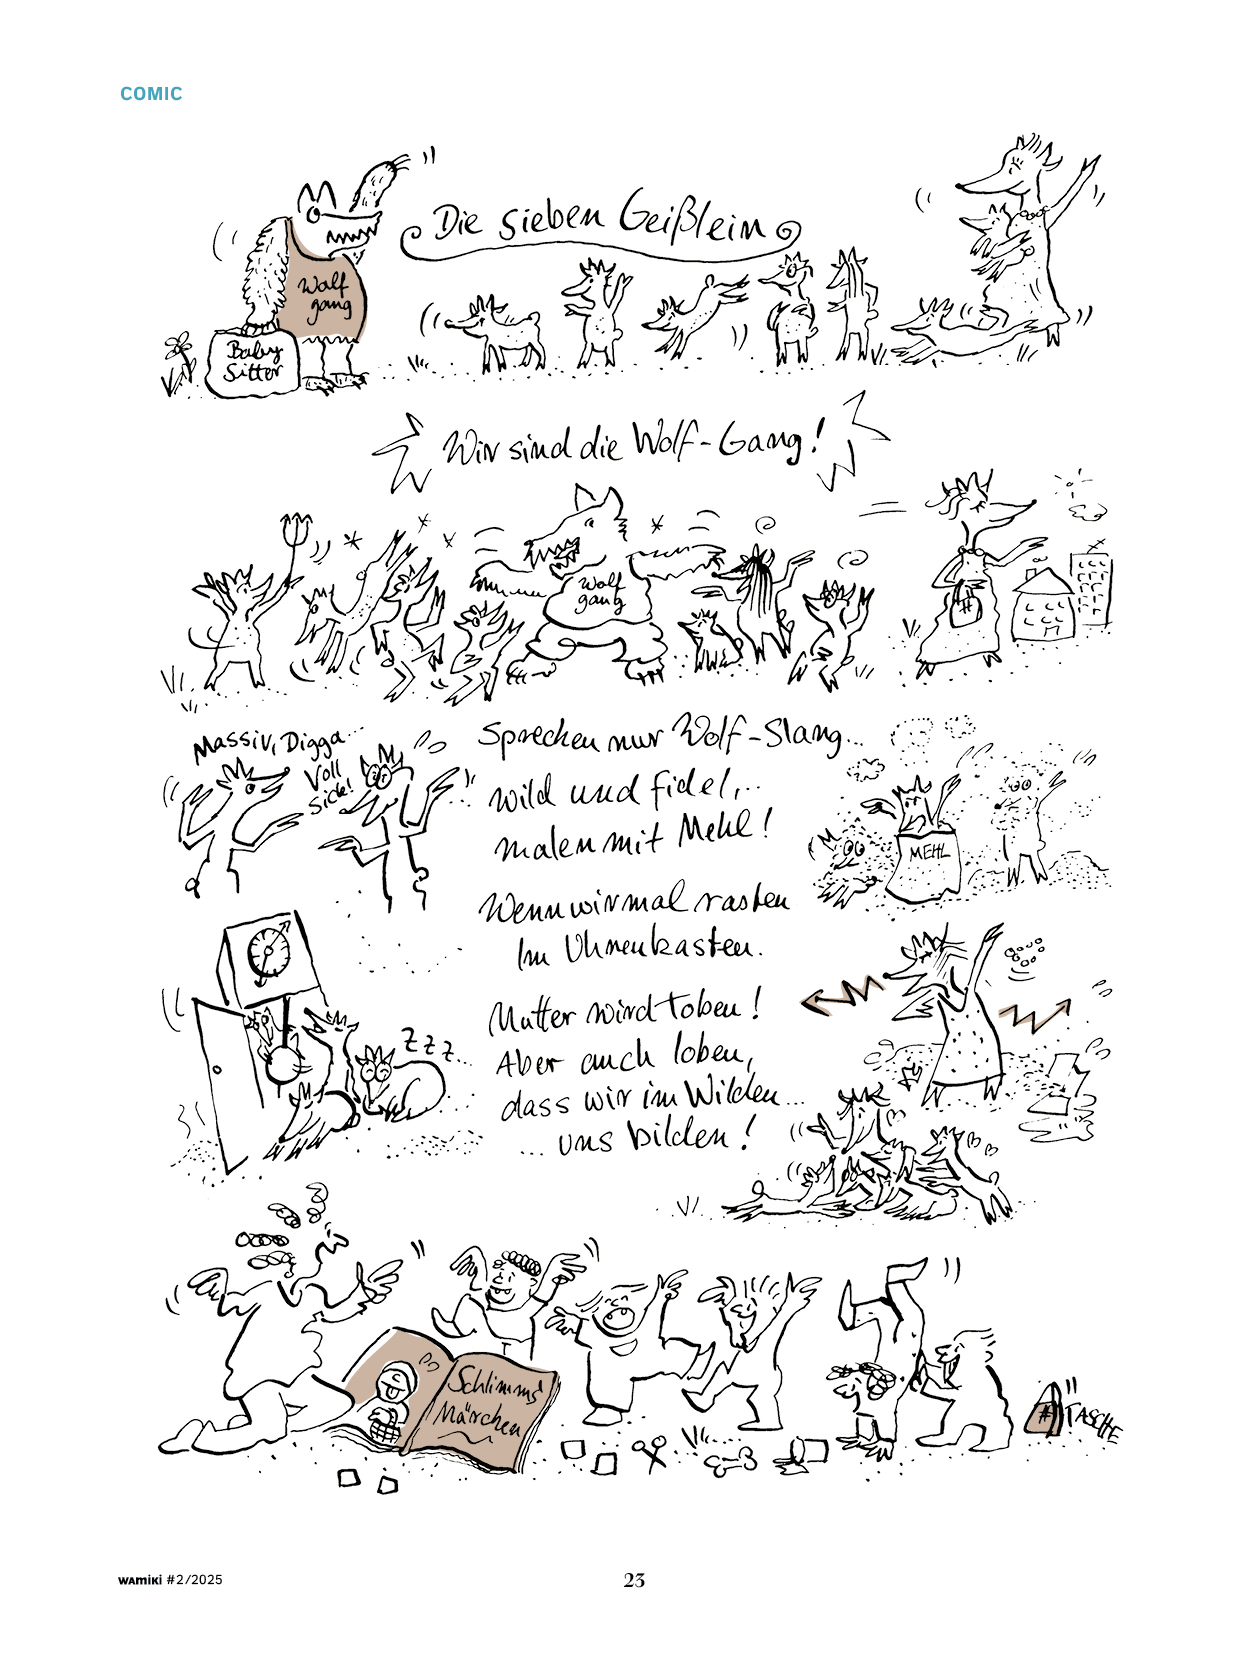 COMIC
Die sieben Geißlein
Wolf
gang
Baby
Sitter
Wir sind die Wolf-Gang!
Wolf
gang
#
Massiv, Digga...
Voll
Sick!
Sprechen nur Wolf-Slang...
wild und fidel,..
malen mit Mehl!
MEHL
Wenn wir mal rasten
Im Uhrenkasten.
ZZZ...
Mutter wird toben!
Aber auch loben,
dass wir im Wilden...
... uns bilden!
Schlimms'
Märchen
#TASCHE
wamiki #2/2025
23